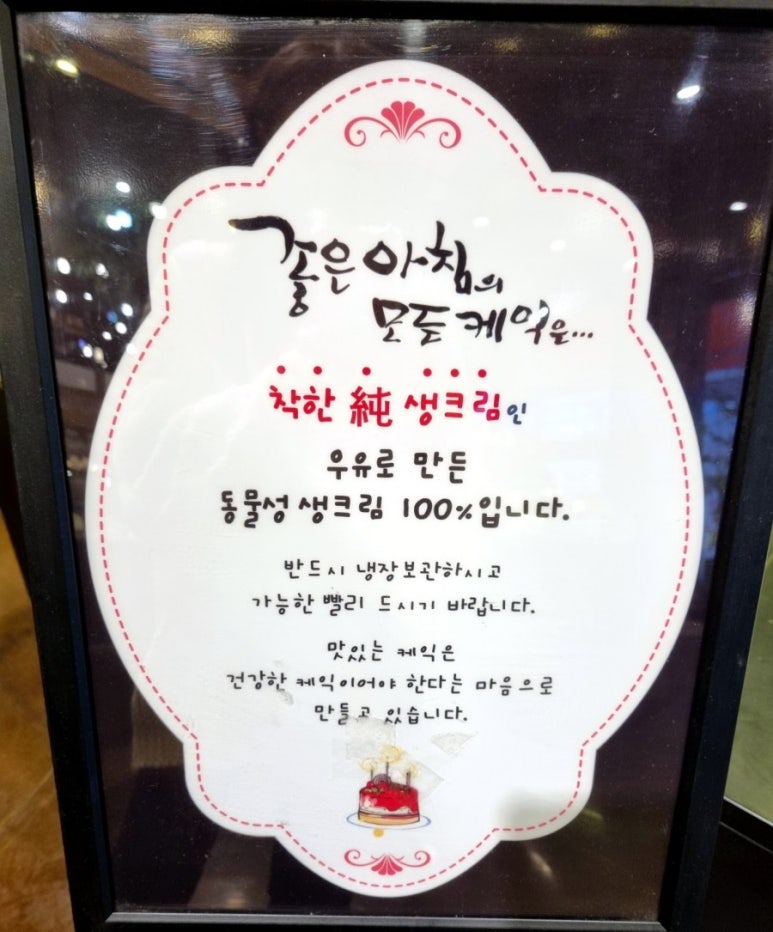 좋은 아침의
모든 케익은...
착한 純 생크림인
우유로 만든
동물성 생크림 100%입니다.
반드시 냉장보관하시고
가능한 빨리 드시기 바랍니다.
맛있는 케익은
건강한 케익이어야 한다는 마음으로
만들고 있습니다.